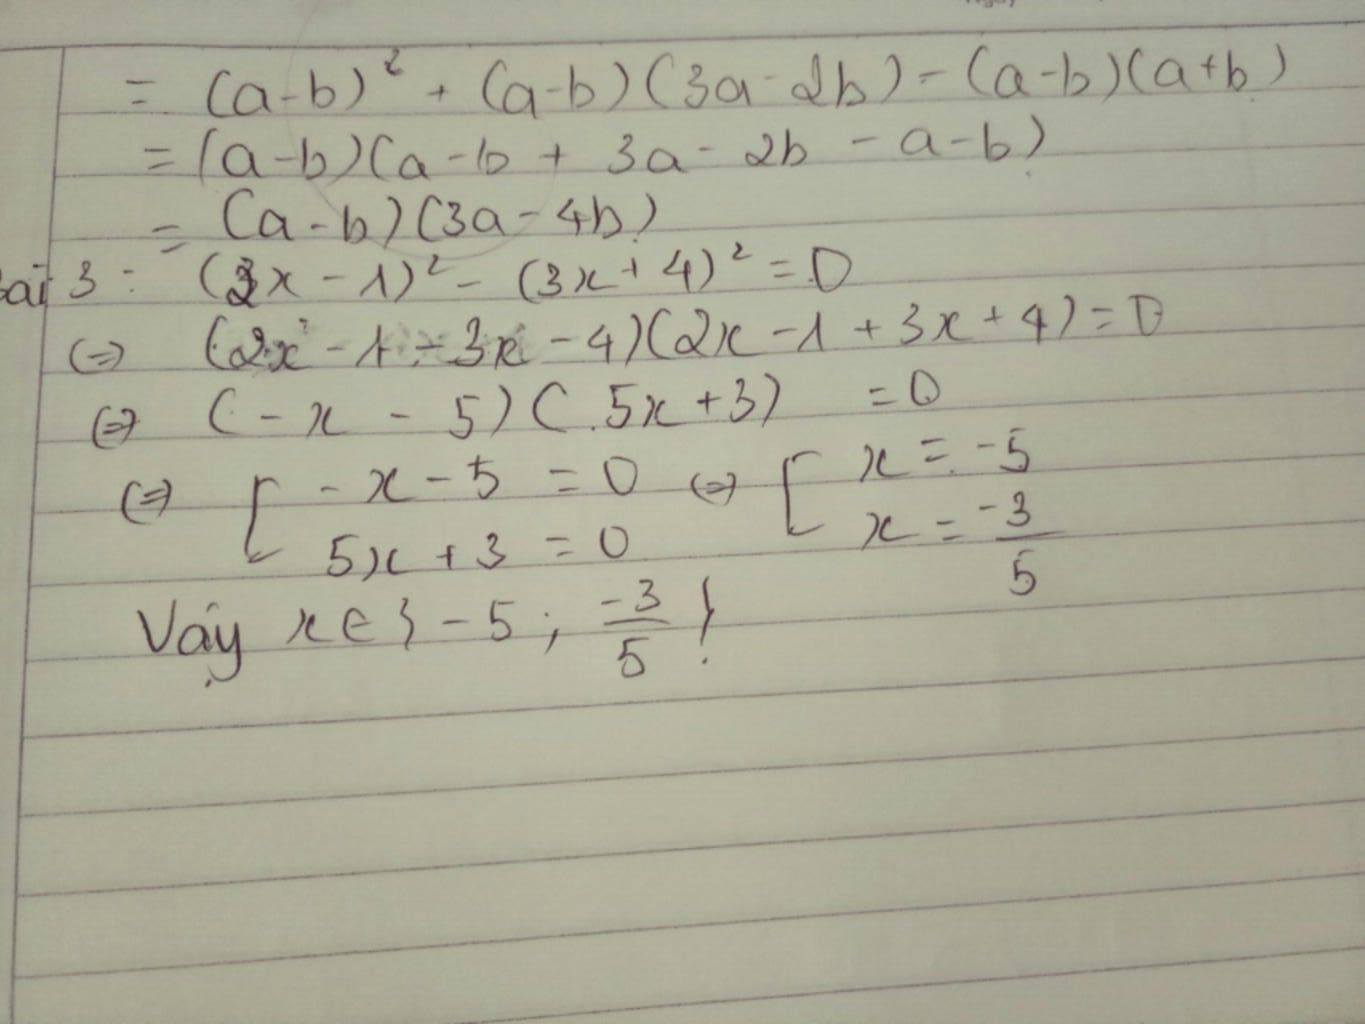 = (a-b)² + (a-b)(3a-2b) - (a-b)(a+b)
= (a-b)(a-b + 3a - 2b - a-b)
= (a-b)(3a-4b)
Bài 3: (2x - 1)² - (3x+4)² = 0
(=) (2x - 1 - 3x - 4)(2x - 1 + 3x + 4) = 0
(=) (-x - 5)(5x+3) = 0
(=) [ -x - 5 = 0 (=) [ x = -5
5x + 3 = 0 x = -3/5
Vậy x ∈ { -5; -3/5 }